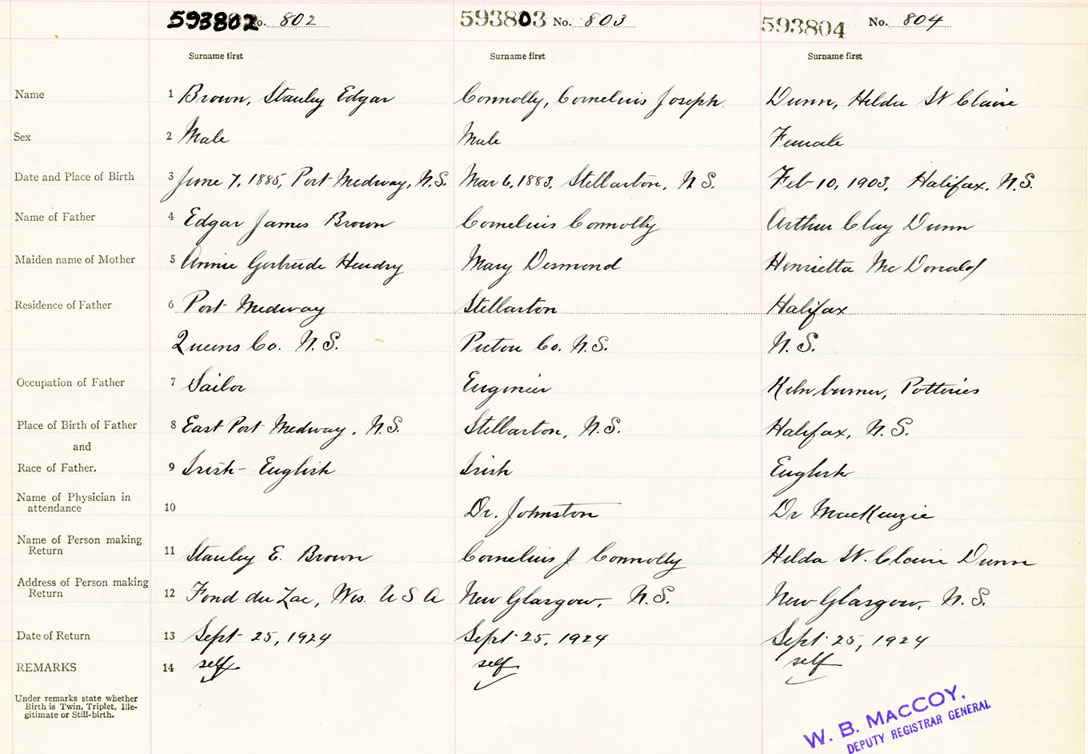 593802 No. 802 593803 No. 803 593804 No. 804
Surname first Surname first Surname first
Name 1 Brown, Stanley Edgar Connolly, Cornelius Joseph. Dunn, Hilda St Claire
Sex 2 Male Male Female
Date and Place of Birth 3 June 7, 1885, Port Medway, N.S. Mar 6, 1883, Stellarton, N.S. Feb 10, 1903, Halifax, N.S.
Name of Father 4 Edgar James Brown Cornelius Connolly Arthur Clay Dunn
Maiden name of Mother 5 Annie Gertrude Hendry Mary Desmond Henrietta McDonald
Residence of Father 6 Port Medway Stellarton Halifax
Queens Co. N.S. Pictou Co. N.S. N.S.
Occupation of Father 7 Sailor Engineer Kiln burner, Potteries
Place of Birth of Father 8 East Port Medway, N.S. Stellarton, N.S. Halifax, N.S.
and
Race of Father. 9 Irish-English Irish English
Name of Physician in
attendance 10 Dr. Johnston Dr MacKenzie
Name of Person making
Return 11 Stanley E. Brown Cornelius J Connolly Hilda St. Claire Dunn
Address of Person making
Return 12 Fond du Lac, Wis. U S A New Glasgow, N.S. New Glasgow, N.S.
Date of Return 13 Sept 25, 1924 Sept 25, 1924 Sept 25, 1924
REMARKS 14 self self self
Under remarks state whether
Birth is Twin, Triplet, Ille-
gitimate or Still-birth.
W. B. MACCOY.
DEPUTY REGISTRAR GENERAL